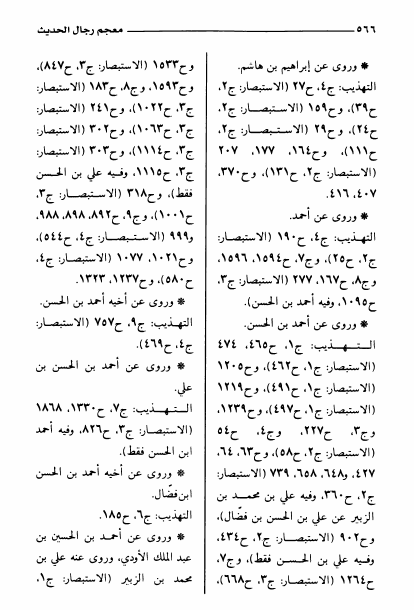 ٥٦٦ معجم رجال الحديث
* وروى عن إبراهيم بن هاشم.
التهذيب: ج٤، ح٢٧ (الاستبصار: ج٢،
ح٣٩)، وح١٥٩ (الاستبصار: ج٢،
ح٢٤)، وح٢٩ (الاستبصار: ج٢،
ح١١١)، وح١٦٤، ١٧٧، ٢٠٧
(الاستبصار: ج٢، ح١٣١)، وح٣٧٠،
٤٠٧، ٤١٦.
* وروى عن أحمد.
التهذيب: ج٤، ح١٩٠ (الاستبصار:
ج٢، ح٢٥)، وج٧، ح١٥٩٤، ١٥٩٦،
وج٨، ح١٦٧، ٢٧٧ (الاستبصار: ج٣،
ح١٠٩٥، وفيه أحمد بن الحسن).
* وروى عن أحمد بن الحسن.
التهذيب: ج١، ح٤٦٥، ٤٧٤
(الاستبصار: ج١، ح٤٦٢)، وح١٢٠٥
(الاستبصار: ج١، ح٤٩١)، وح١٢١٩
(الاستبصار: ج١، ح٤٩٧)، وح١٢٣٩،
وج٣، ح٢٢٧، وج٤، ح٥٤
(الاستبصار: ج٢، ح٥٨)، وح٦٣، ٦٤،
٤٢٧، و٦٤٨، ٦٥٨، ٧٣٩ (الاستبصار:
ج٢، ح٣٦٠، وفيه علي بن محمد بن
الزبير عن علي بن الحسن بن فضال)،
وح٩٠٢ (الاستبصار: ج٢، ح٤٣٤،
وفيه علي بن الحسن فقط)، وج٧،
ح١٢٦٤ (الاستبصار: ج٣، ح٦٦٨)،
وح١٥٣٣ (الاستبصار: ج٣، ح٨٤٧)،
وح١٥٩٣، وج٨، ح١٨٣ (الاستبصار:
ج٣، ح١٠٢٢)، وح٢٤١ (الاستبصار:
ج٣، ح١٠٦٣)، وح٣٠٢ (الاستبصار:
ج٣، ح١١١٤)، وح٣٠٣ (الاستبصار:
ج٣، ح١١١٥، وفيه علي بن الحسن
فقط)، وح٣١٨ (الاستبصار: ج٣،
ح١٠٠١)، وج٩، ح٨٩٢، ٨٩٨، ٩٨٨،
و٩٩٩ (الاستبصار: ج٤، ح٥٤٤)،
وح١٠٢١، ١٠٧٧ (الاستبصار: ج٤،
ح٥٨٠)، وح١٢٣٧، ١٣٢٣.
* وروى عن أخيه أحمد بن الحسن.
التهذيب: ج٩، ح٧٥٧ (الاستبصار:
ج٤، ح٤٦٩).
* وروى عن أحمد بن الحسن بن
علي.
التهذيب: ج٧، ح١٣٣٠، ١٨٦٨
(الاستبصار: ج٣، ح٨٢٦، وفيه أحمد
ابن الحسن فقط).
* وروى عن أخيه أحمد بن الحسن
ابن فضّال.
التهذيب: ج٦، ح١٨٥.
* وروى عن أحمد بن الحسين بن
عبد الملك الأودي، وروى عنه علي بن
محمد بن الزبير (الاستبصار: ج١،